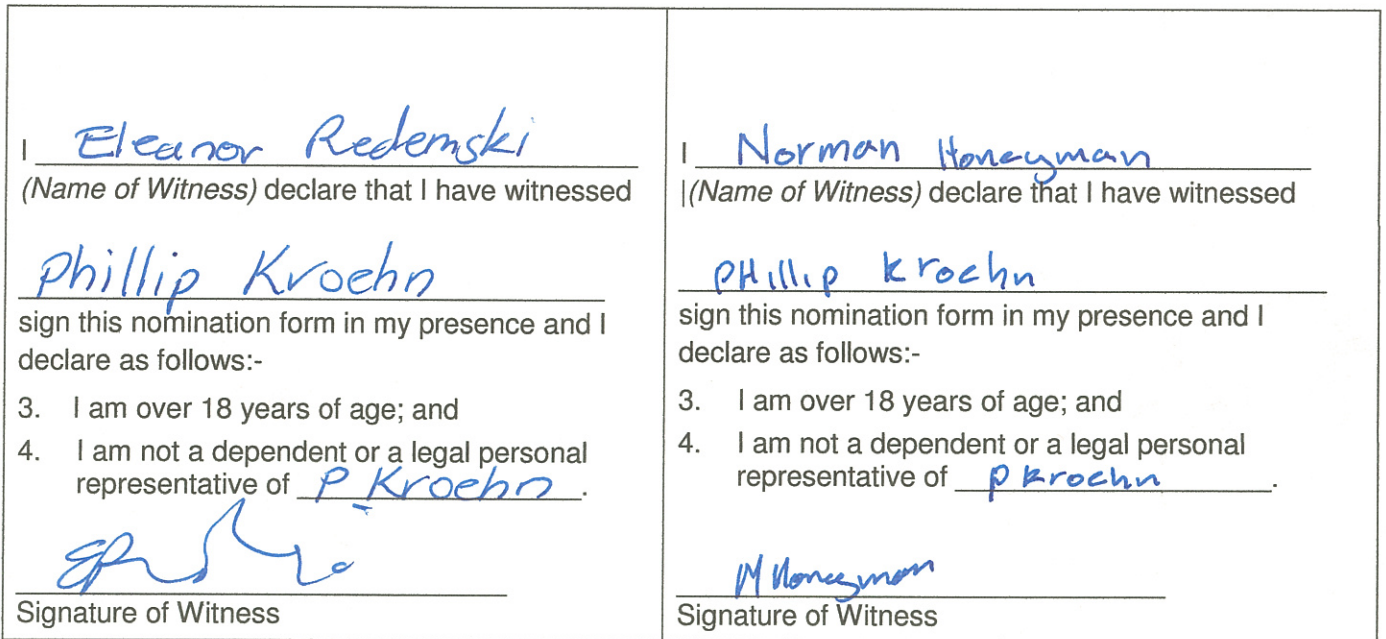 I Eleanor Redemski
(Name of Witness) declare that I have witnessed
Phillip Kroehn
sign this nomination form in my presence and I
declare as follows:-
3. I am over 18 years of age; and
4. I am not a dependent or a legal personal
representative of P Kroehn.
Signature of Witness
I Norman Honeyman
|(Name of Witness) declare that I have witnessed
PHillip kroehn
sign this nomination form in my presence and I
declare as follows:-
3. I am over 18 years of age; and
4. I am not a dependent or a legal personal
representative of P kroehn.
Honeyman
Signature of Witness